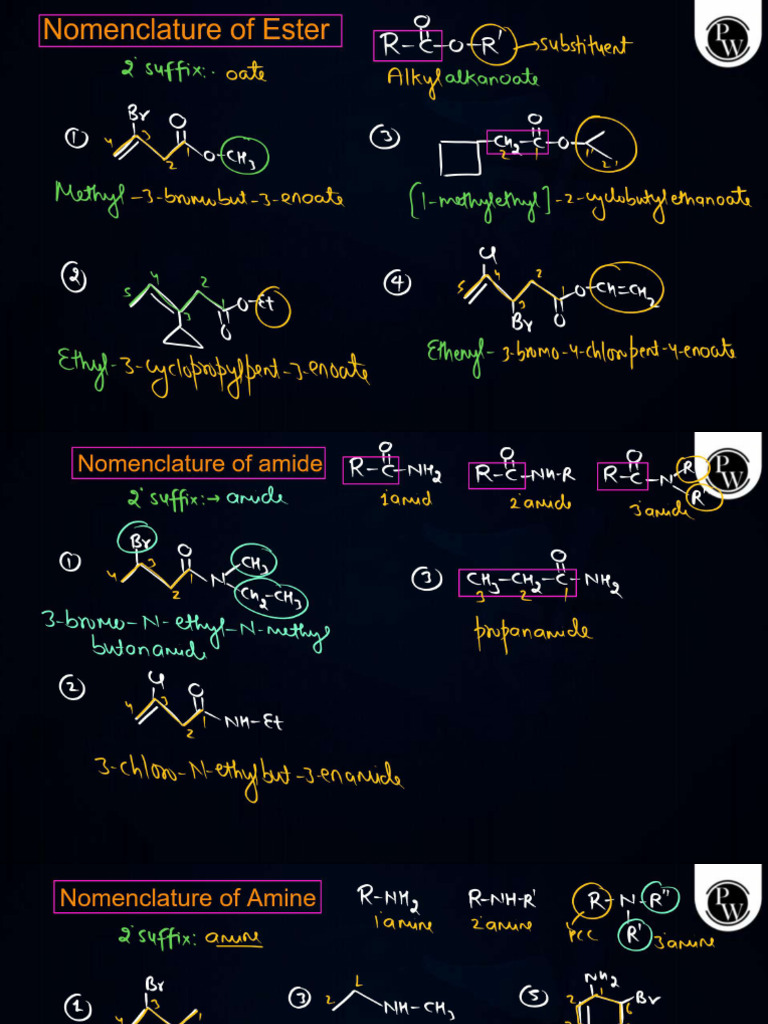 Nomenclature of Ester
R-C-O-R' → substituent
O
2° suffix:- oate
Alkyl alkanoate
PW
① Br O O-CH3 4 3 2
Methyl-3-bromobut-3-enoate
③ CH2-C-O O 2 1 1' 2'
[1-methylethyl]-2-cyclobutylethanoate
② 5 4 3 2 1 O-Et O
Ethyl-3-cyclopropylpent-3-enoate
④ Cl 5 4 3 2 1 Br O O-CH=CH2
Ethenyl-3-bromo-4-chloropent-4-enoate
Nomenclature of amide
R-C-NH2 O
R-C-NH-R O
R-C-N O R R"
PW
2° suffix:→ amide
1°amid
2°amide
3°amide
① Br O N CH3 CH2-CH3 4 3 2 1
3-bromo-N-ethyl-N-methyl
butanamide
③ CH3-CH2-C-NH2 O 3 2 1
propanamide
② Cl O NH-Et 4 3 2 1
3-chloro-N-ethylbut-3-enamide
Nomenclature of Amine
R-NH2
R-NH-R'
R-N-R" R'
PW
1°amine
2°amine
PCC
3°amine
2° suffix: amine
① Br 4 3 1
③ 2 1 NH-CH3
⑤ NH2 Br 1 2 6